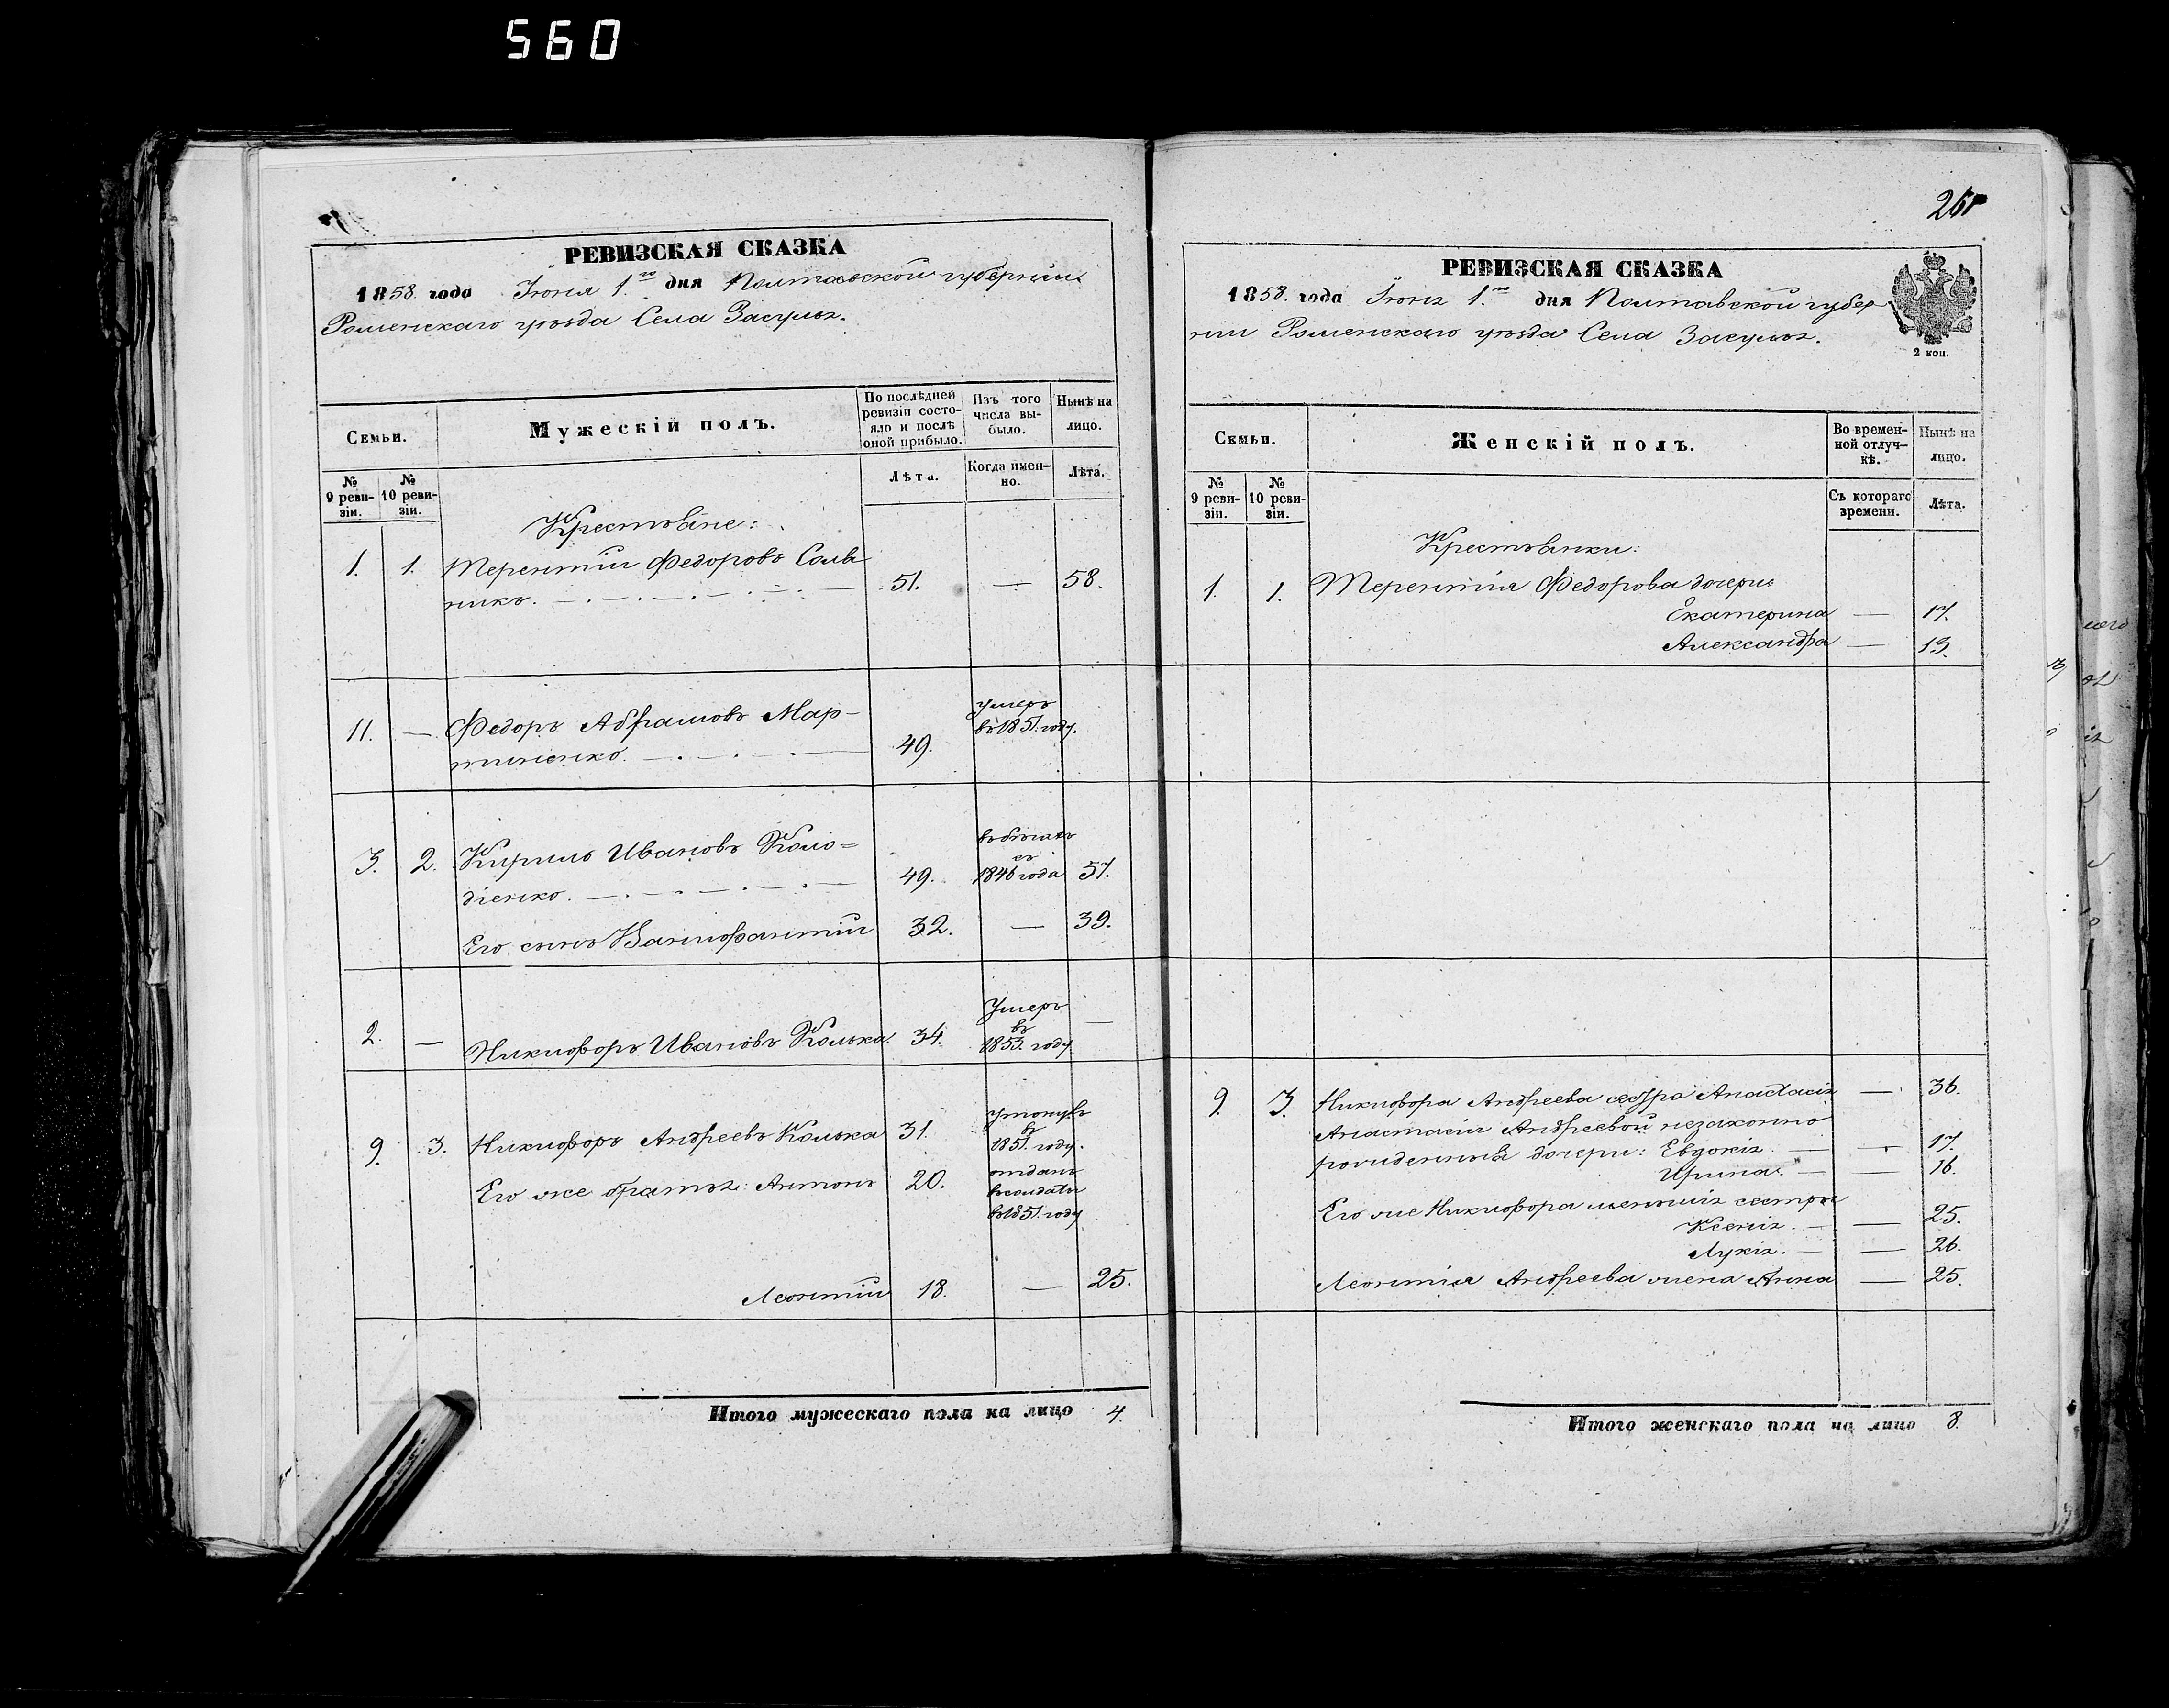 560
РЕВИЗСКАЯ СКАЗКА
1858. года Іюня 1.го дня Полтавской губерніи
Роменскаго уѣзда Села Засулья.
Семьи.
Мужескій полъ.
По послѣдней ревизіи состо-
яло и послѣ оной прибыло.
Изъ того числа вы-
было.
Нынѣ на лицо.
№ 9 реви-
зіи.
№ 10 реви-
зіи.
Лѣта.
Когда имен-
но.
Лѣта.
Крестьяне:
1. 1. Терентій Федоровъ
никъ. 51. — 58.
11. — Федоръ Абрамовъ Мар-
тиненко. 49. умеръ
въ 1851. году.
3. 2. Кирило Ивановъ Коло-
діенко. 49. 1846 года 57.
Его сынъ 32. — 39.
2. — Никифоръ Ивановъ Колька 34. Умеръ
въ
1853. году. —
9. 3. Никифоръ Андреевъ Колька 31. утонулъ
в
1851. году.
Его же братья: Антонъ 20. отданъ
въ солдаты
въ 1851. году
Леонтій 18. — 25.
Итого мужескаго пола на лицо 4.
РЕВИЗСКАЯ СКАЗКА
1858. года Іюня 1.го дня Полтавской губер-
ніи Роменскаго уѣзда Села Засулья.
2 коп.
Семьи.
Женскій полъ.
Во времен-
ной отлуч-
кѣ.
Нынѣ на лицо.
№ 9 реви-
зіи.
№ 10 реви-
зіи.
Съ котораго времени.
Лѣта.
Крестьянки:
1. 1. Терентія Федорова дочери
Екатерина — 17.
Александра — 13.
9. 3. Никифора Андреева сестра Анастасія — 36.
Анастасіи Андреевой незаконно
рожденныя дочери: Евдокія. — 17.
Ирина. — 16.
Его же Никифора меньшія сестры
Ксенія. — 25.
Лукія. — 26.
Леонтія Андреева жена Анна — 25.
Итого женскаго пола на лицо 8.